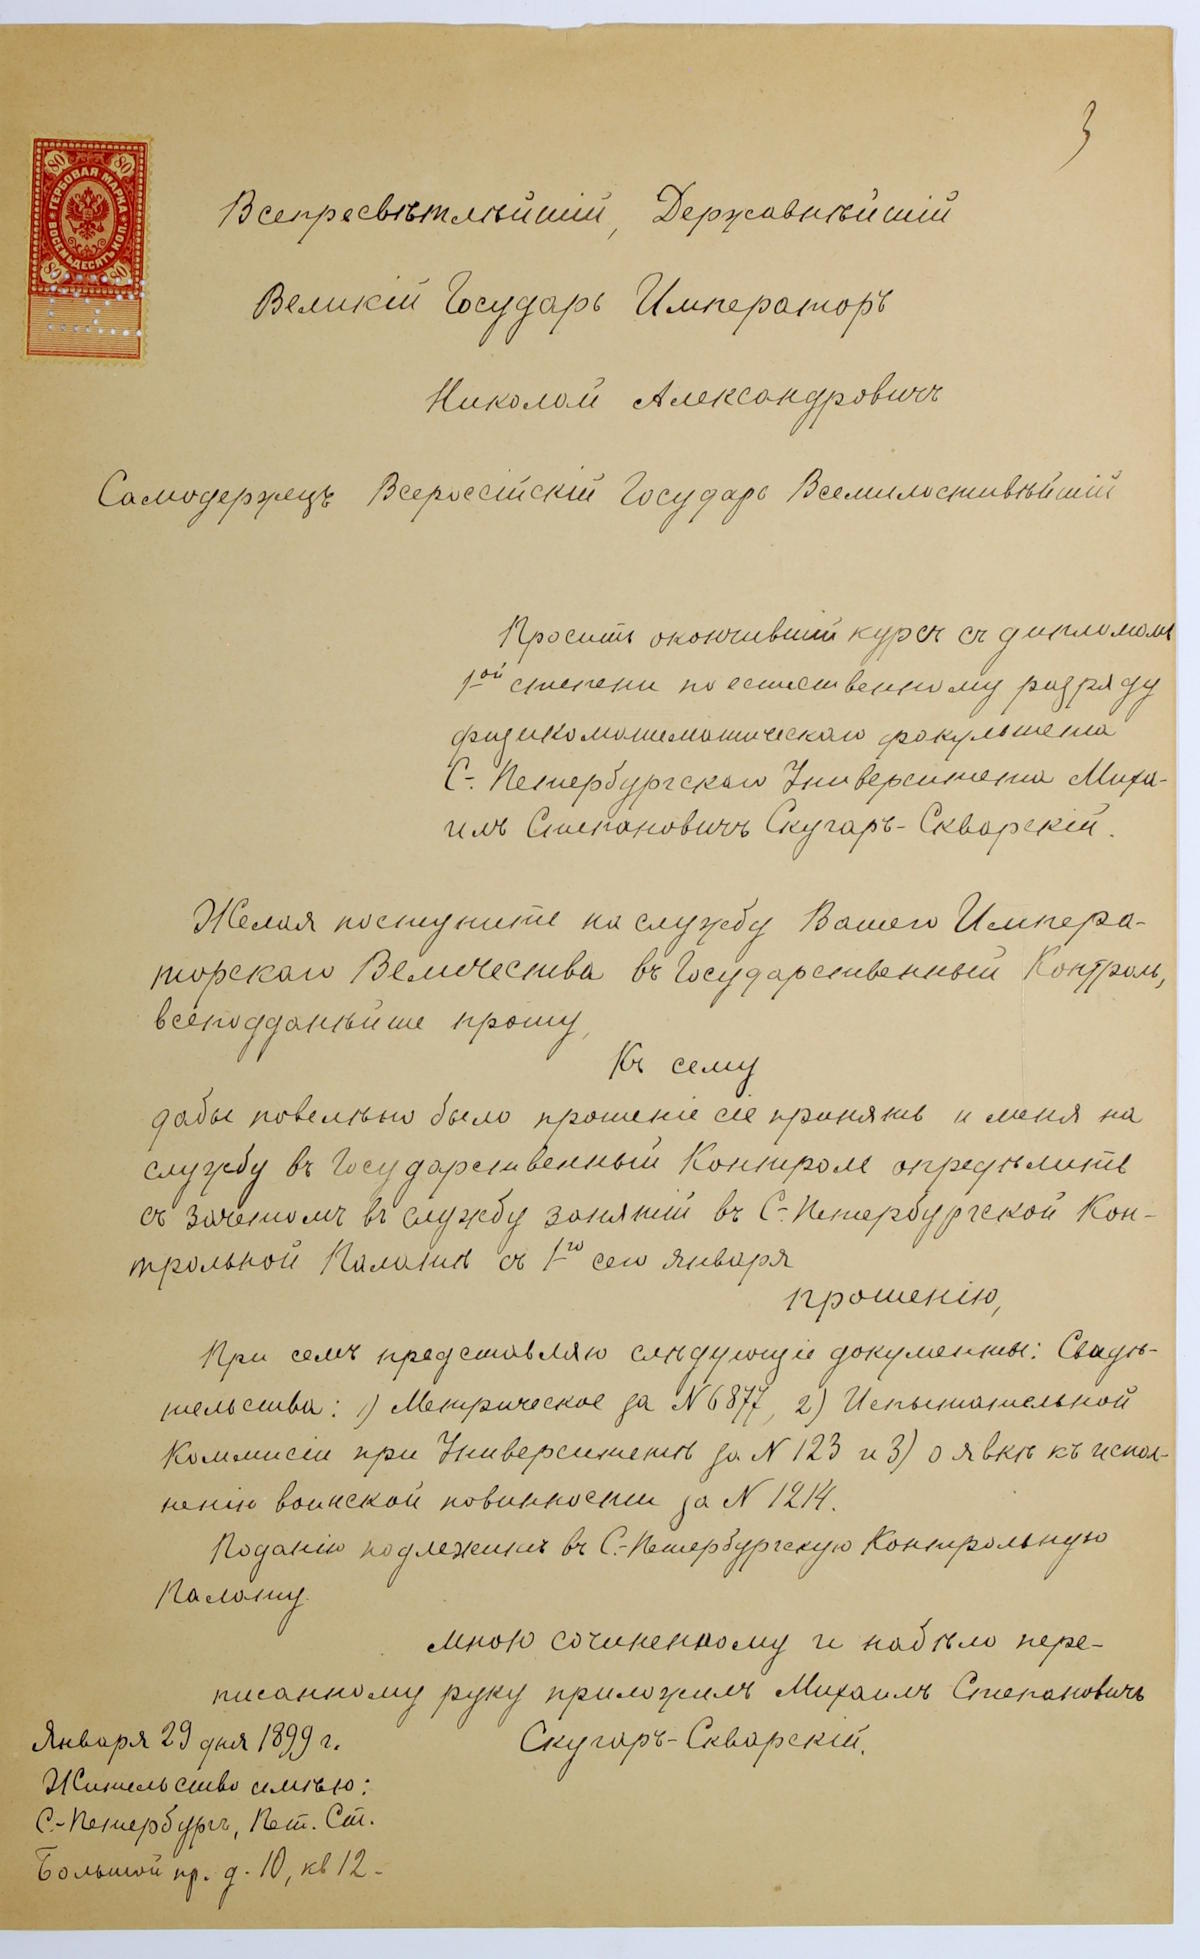 3
80 80
ГЕРБОВАЯ МАРКА
ВОСЕМЬДЕСЯТЪ КОП.
80 80
Всепресвѣтлѣйшій, Державнѣйшій
Великій Государь Императоръ
Николай Александровичъ
Самодержецъ Всероссійскій Государь Всемилостивѣйшій
Проситъ окончившій курсъ съ дипломомъ
1-ой степени по естественному разряду
физикоматематическаго факультета
С.-Петербургскаго Университета Миха-
илъ Степановичъ Скугаръ-Скварскій.
Желая поступить на службу Вашего Импера-
торскаго Величества въ Государственный Контроль,
всеподданѣйше прошу,
Къ сему
дабы повелѣно было прошеніе сіе принять и меня на
службу въ Государственный Контроль опредѣлить
съ зачетомъ въ службу занятій въ С.-Петербургской Кон-
трольной Палатѣ съ 1-го сего января
прошенію,
При семъ представляю слѣдующіе документы: Свидѣ-
тельства: 1) Метрическое за N 6877, 2) Испытательной
Коммисіи при Университетѣ за N 123 и 3) о явкѣ къ испол-
ненію воинской повинности за N 1214.
Поданію подлежитъ въ С.-Петербургскую Контрольную
Палату.
мною сочиненному и набѣло пере-
писанному руку приложилъ Михаилъ Степановичъ
Скугаръ-Скварскій.
Января 29 дня 1899 г.
Жительство имѣю:
С.-Петербургъ, Пет. Ст.
Большой пр. д. 10, кв 12-